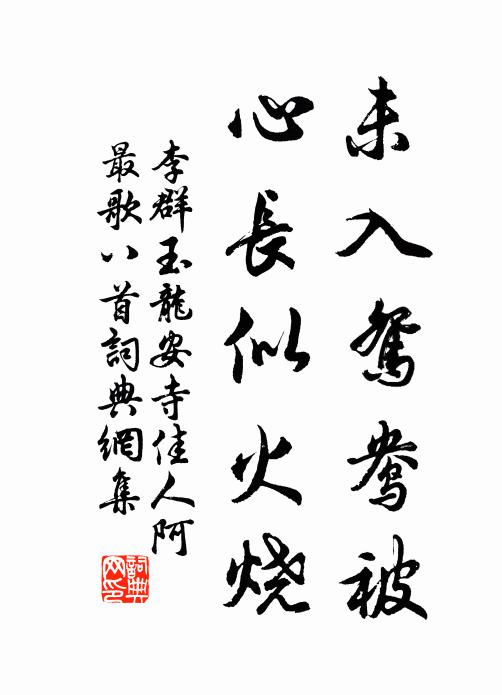 未入鴛鴦被
心長似火燒
李群玉龍安寺佳人阿
最歌八首詞典網集
詞典
网印